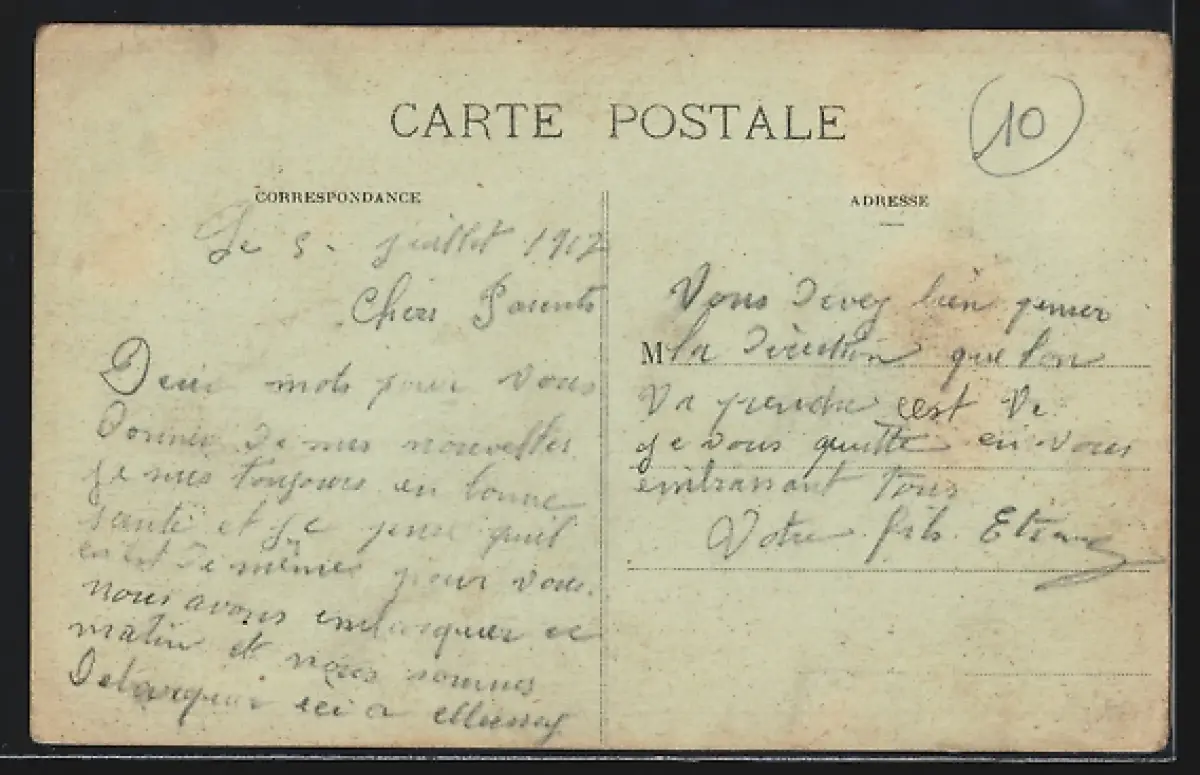 CARTE POSTALE
10
CORRESPONDANCE
Le 5 - juillet 1917
Chers Parents
Deux mots pour vous
Donner De mes nouvelles
je suis toujours en bonne
santé et je pense quil
en est De mêmes pour vous.
nous avons embarquer ce
matin et nous sommes
Debarquer ici a Mussey
ADRESSE
Vous Devez bien penser
M
la Direction que lon
Va prendre cest Ve
je vous quitte en vous
embrassant Tous
Votre fils Etienne